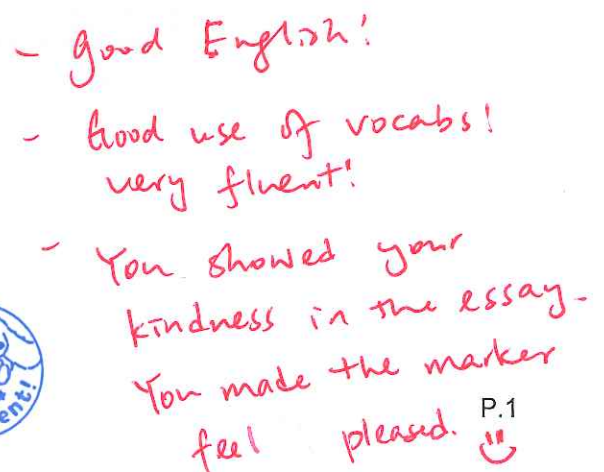 - Good English!
- Good use of vocabs!
very fluent!
- You showed your
kindness in the essay.
You made the marker
feel pleased. P.1